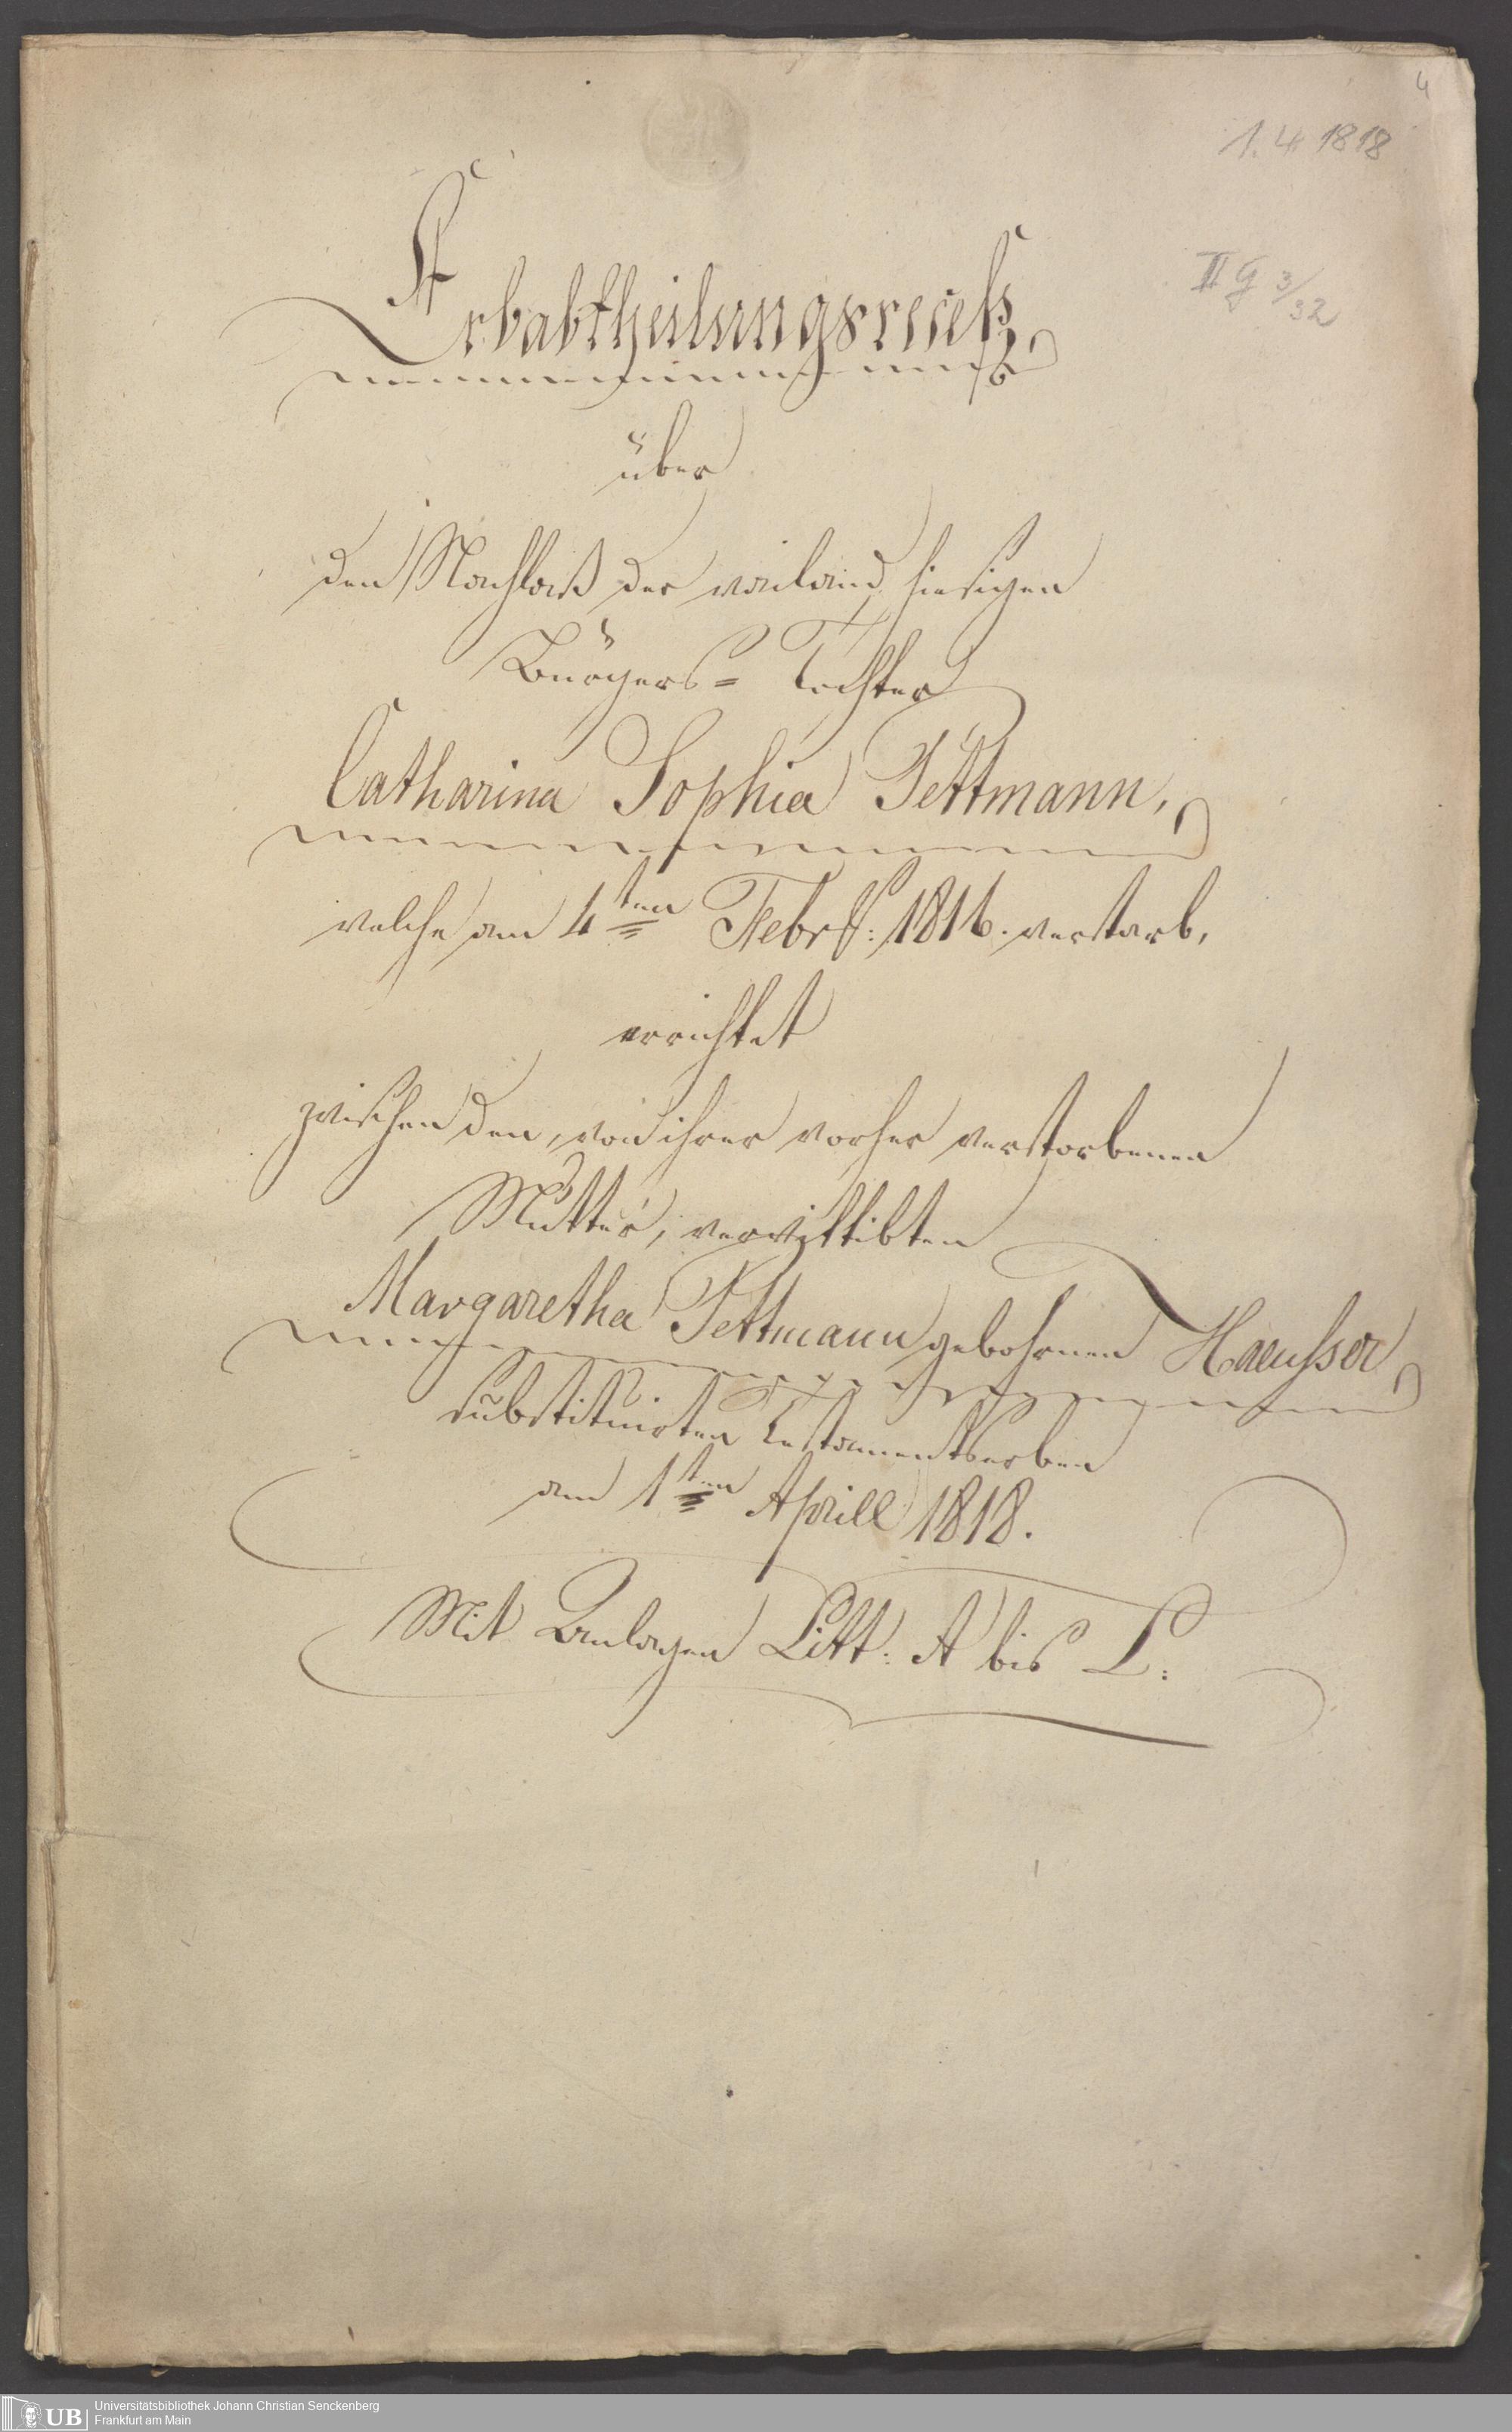 4
1. 4. 1818
II G 3/32
Erbabtheilungsrecess
über
den Nachlaß der weiland hiesigen
Bürgers= Tochter
Catharina Sophia Tettmann,
welche am 4ten Febr: 1816. verstarb,
errichtet
zwischen den, von ihrer vorher verstorbenen
Mutter, verwittibten
Margaretha Tettmann gebohrnen Haeusser
substituirten Testamentserben
am 1ten Aprill 1818.
Mit Anlagen Litt: A bis L:
UB
Universitätsbibliothek Johann Christian Senckenberg
Frankfurt am Main